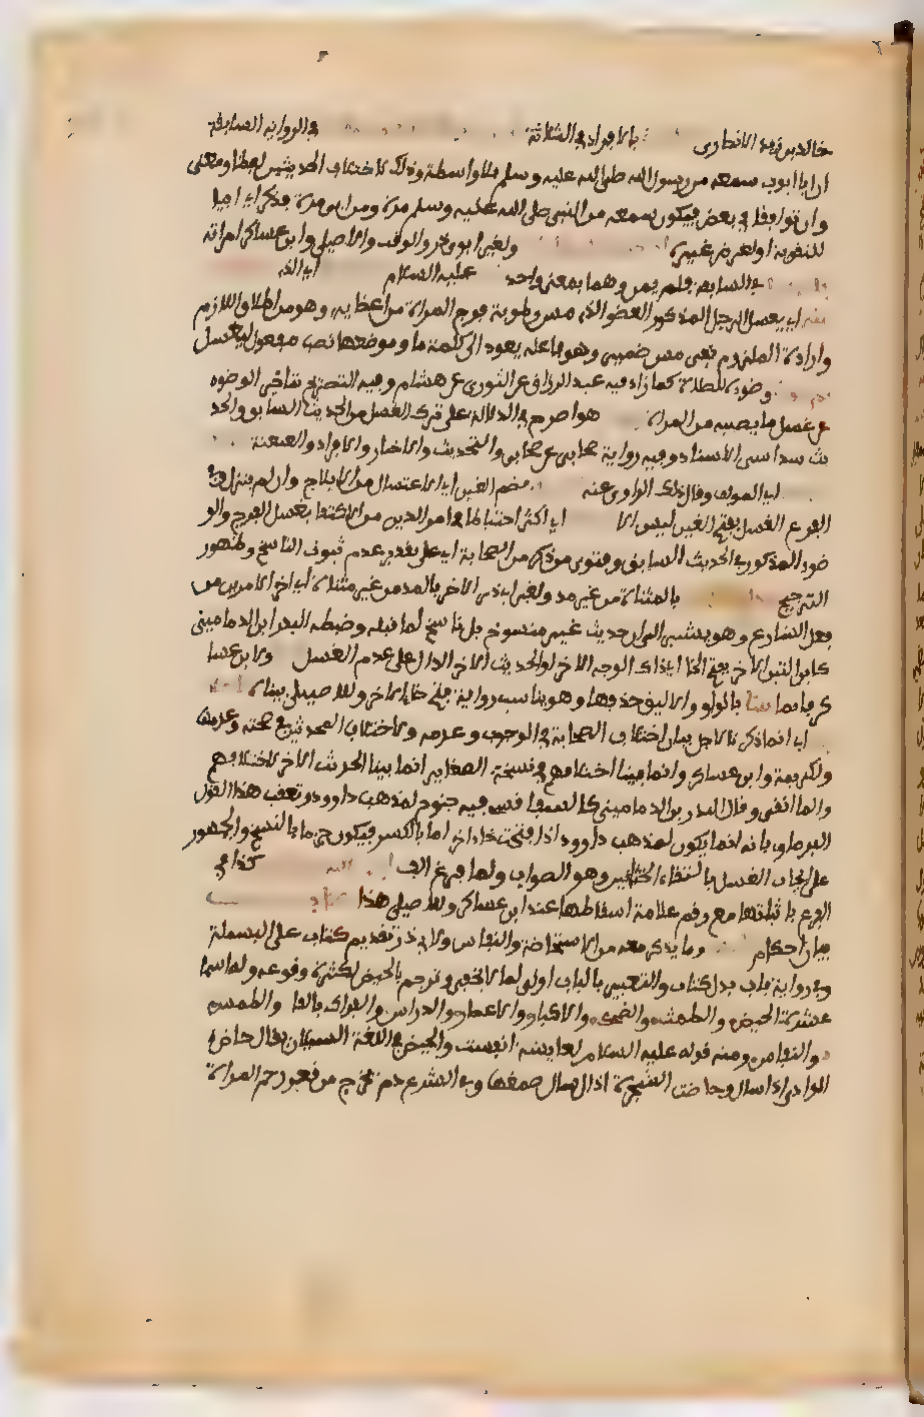 خالد بن زيد الانصاري بالافراد في الثلاثة في الرواية السابقة
ان ابا ايوب سمعه من رسول الله صلى الله عليه وسلم بلا واسطة وذلك لاختلاف الحديثين لفظا ومعنى
وان توافقا في بعض فيكون سمعه من النبي صلى الله عليه وسلم مرة ومن ابي مرة فذكر اي ابيا
للتقوية او لغرض غيره ولغير ابوي ذر والوقت والاصيلي وابن عساكر امراته
في السابقة فلم يمن وهما بمعنى واحد عليه السلام اي الذي
اي يغسل الرجل المذكور العضو الذي مس رطوبة فرج المراة من اعضايه وهو من اطلاق اللازم
وارادة الملزوم ففي مس ضمير وهو فاعله يعود الى كلمة ما وموضعها نصب مفعول ليغسل
وضوه للصلاة كما زاد فيه عبد الرزاق عن الثوري عن هشام وفيه التصريح بتاخير الوضوء
عن غسل ما يصيبه من المراة هو اصرح في الدلالة على ترك الغسل من الحديث السابق والحد
يث سداسي الاسناد وفيه رواية صحابي عن صحابي والتحديث والاخبار والافراد والعنعنة
اي المولف وقال ذلك الراوي عنه بضم الغين اي الاغتسال من الايلاج وان لم ينزل وفي
الفرع الغسل بفتح الغين ليس الا اي اكثر احتياطا في امر الدين من الاكتفا بغسل الفرج والو
ضوء المذكور في الحديث السابق وفتوى من ذكر من الصحابة اي على تقدير عدم ثبوت الناسخ وظهور
الترجيح بالمثناة من غير مد ولغير ابي ذر الاخر بالمد من غير مثناة اي اخر الامرين من
فعل الشارع وهو يشير الى ان حديث غير منسوخ بل ناسخ لما قبله وضبطه البدر ابن الدماميني
كابن التين الاخر بفتح الخا اي ذاك الوجه الاخر او الحديث الاخر الدال على عدم الغسل ولابن عسا
كر بالواو والاليق حذفها وهو يناسب رواية فتح خا الاخر وللاصيلي بيناه
اي انما ذكرنا لاجل بيان اختلاف الصحابة في الوجوب وعدمه ولاختلاف المحدثين في صحته وعدمها
ولكريمة وابن عساكر وانما بينا اختلافهم وفي نسخة الصغاني انما بينا الحديث الاخر لاختلافهم
والما انقى وقال البدر بن الدماميني كالسفاقسي فيه جنوح لمذهب داوود وتعقب هذا القول
البرماوي بانه انما يكون لمذهب داوود اذا فتحت خا اخر اما بالكسر فيكون جزما بالنسخ والجمهور
على ايجاب الغسل بالتقاء الختانين وهو الصواب ولما فرغ كذا في
الفرع باثباتها مع رقم علامة اسقاطها عند ابن عساكر وللاصيلي هذا
بيان احكام وما يذكر معه من الاستحاضة والنفاس ولابي ذر تقديم كتاب على البسملة
وفي رواية باب بدل كتاب والتعبير بالباب اولى لما لا يخفى وترجم بالحيض لكثرة وقوعه وله اسما
عشرة الحيض والطمث والضحك والاكبار والاعصار والدراس والعراك بالفا والطمس
والنفاس ومنه قوله عليه السلام لعايشة انفست والحيض في اللغة السيلان يقال حاض
الوادي اذا سال وحاضت الشجرة اذا سال صمغها وفي الشرع دم يخرج من قعر رحم المراة